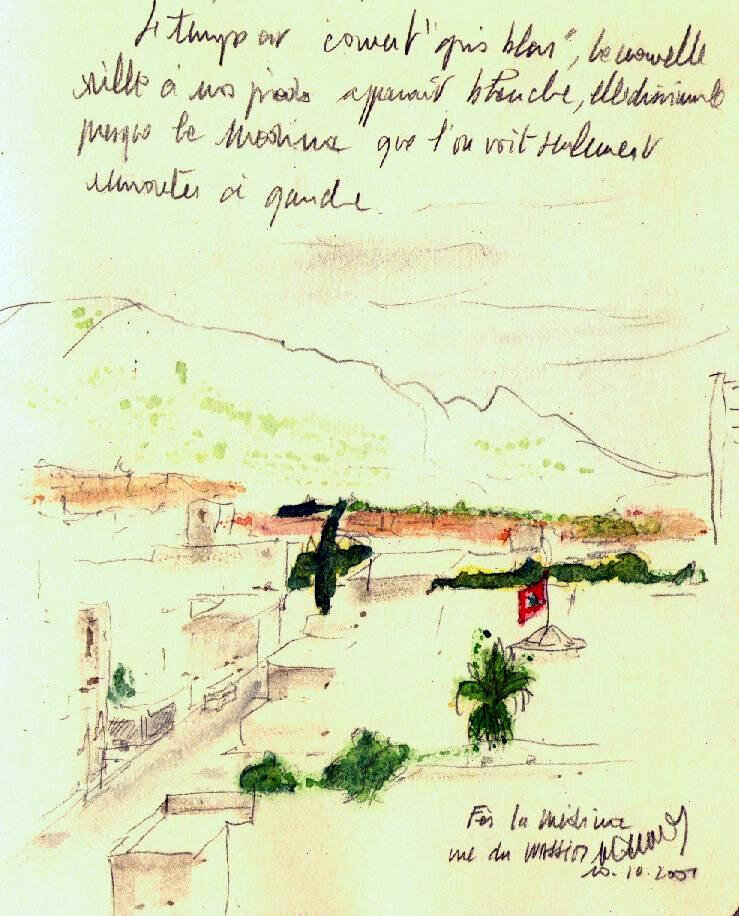 Le temps est couvert "gris bleu", la nouvelle
ville à nos pieds apparait blanche, elle dissimule
presque la Medina que l'on voit seulement
remonter à gauche.
Fès la Médina
vue du
10.10.2001